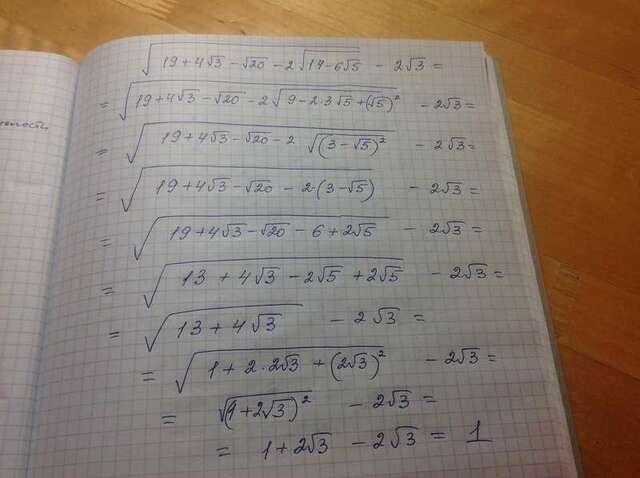 √(19+4√3-√20-2√(14-6√5)) - 2√3 =
= √(19+4√3-√20-2√(9-2·3√5+(√5)²)) - 2√3 =
= √(19+4√3-√20-2√((3-√5)²)) - 2√3 =
= √(19+4√3-√20-2·(3-√5)) - 2√3 =
= √(19+4√3-√20-6+2√5) - 2√3 =
= √(13+4√3-2√5+2√5) - 2√3 =
= √(13+4√3) - 2√3 =
= √(1+2·2√3+(2√3)²) - 2√3 =
= √((1+2√3)²) - 2√3 =
= 1+2√3 - 2√3 = 1